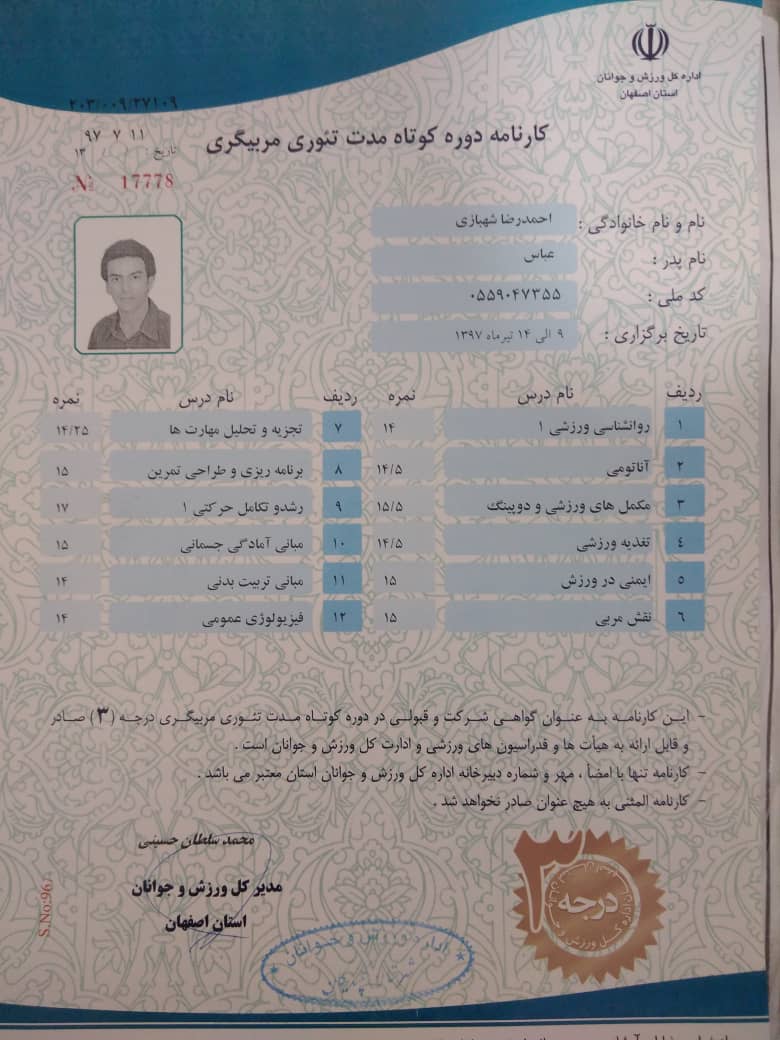 اداره کل ورزش و جوانان
استان اصفهان
۲۰۳/۰۰۹/۲۷۱۰۹
۹۷ ۷ ۱۱
تاریخ : / / ۱۳
کارنامه دوره کوتاه مدت تئوری مربیگری
№ 17778
نام و نام خانوادگی : احمدرضا شهبازی
نام پدر : عباس
کد ملی : ۰۵۵۹۰۴۷۳۵۵
تاریخ برگزاری : ۹ الی ۱۴ تیرماه ۱۳۹۷
ردیف نام درس نمره ردیف نام درس نمره
۱ روانشناسی ورزشی ۱ ۱۴ ۷ تجزیه و تحلیل مهارت ها ۱۴/۲۵
۲ آناتومی ۱۴/۵ ۸ برنامه ریزی و طراحی تمرین ۱۵
۳ مکمل های ورزشی و دوپینگ ۱۵/۵ ۹ رشدو تکامل حرکتی ۱ ۱۷
٤ تغذیه ورزشی ۱۴/۵ ۱۰ مبانی آمادگی جسمانی ۱۵
۵ ایمنی در ورزش ۱۵ ۱۱ مبانی تربیت بدنی ۱۴
٦ نقش مربی ۱۵ ۱۲ فیزیولوژی عمومی ۱۴
- این کارنامه به عنوان گواهی شرکت و قبولی در دوره کوتاه مدت تئوری مربیگری درجه (۳) صادر
و قابل ارائه به هیأت ها و فدراسیون های ورزشی و ادارت کل ورزش و جوانان است .
- کارنامه تنها با امضأ ، مهر و شماره دبیرخانه اداره کل ورزش و جوانان استان معتبر می باشد .
- کارنامه المثنی به هیچ عنوان صادر نخواهد شد .
محمد سلطان حسینی
مدیر کل ورزش و جوانان
استان اصفهان
درجه ۳
اداره ورزش و جوانان
S.No:96